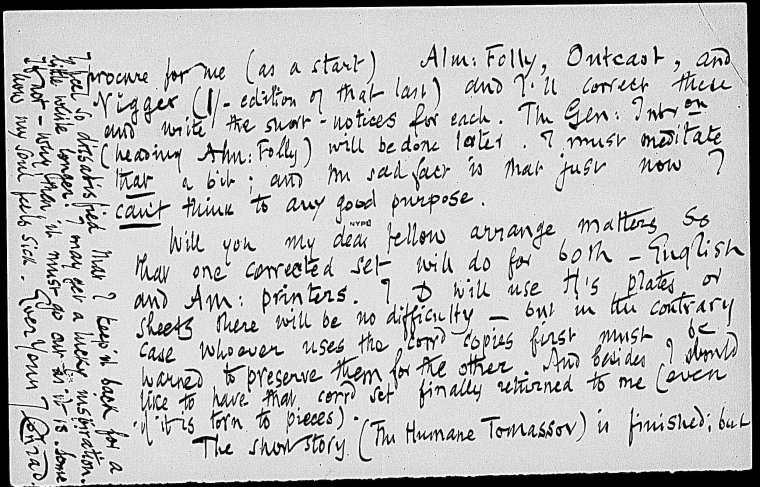 procure for me (as a start) Alm: Folly, Outcast, and
Nigger (1/- edition of that last) and I'll correct these
and write the short-notices for each. The Gen: Introon
(heading Alm: Folly) will be done later. I must meditate
that a bit; and the sad fact is that just now I
can't think to any good purpose.
NYPL
Will you my dear fellow arrange matters so
that one corrected set will do for both – English
and Am: printers. If D will use H's plates or
sheets there will be no difficulty – but in the contrary
case whoever uses the corrd copies first must be
warned to preserve them for the other. And besides I should
like to have that corrd set finally returned to me (even
if it is torn to pieces).
The short story (The Humane Tomassov) is finished; but
I feel so dissatisfied that I keep it back for a
little while longer. I may get a lucky inspiration.
If not – why then it must go out as it is. Some
how my soul feels sick. Ever Yours J Conrad.